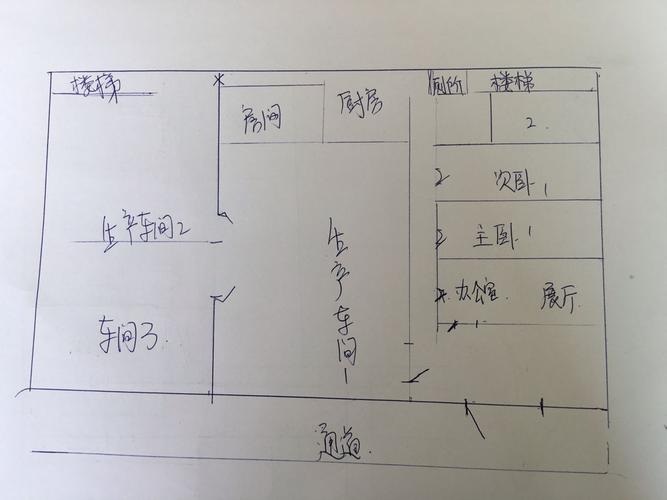 楼梯
厕所
楼梯
房间
厨房
2.
次卧1
生产车间2
主卧1
生产车间1
办公室
展厅
车间3
通道